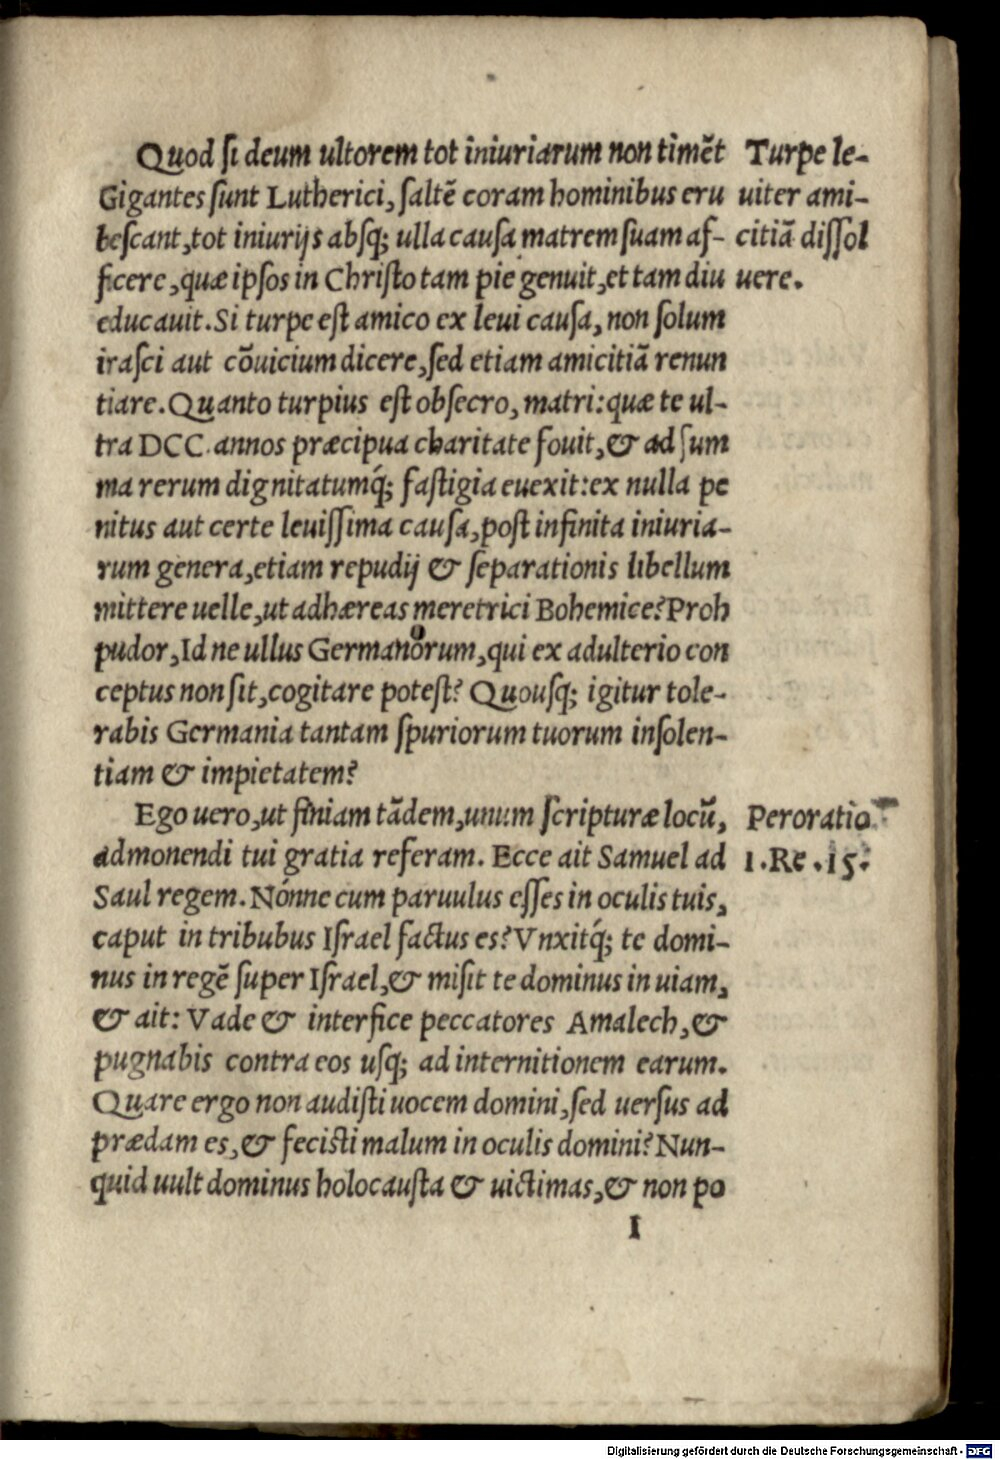 Quod si deum ultorem tot iniuriarum non timẽt
Gigantes sunt Lutherici, saltẽ coram hominibus eru
bescant, tot iniurijs absq; ulla causa matrem suam af-
ficere, quæ ipsos in Christo tam pie genuit, et tam diu
educauit. Si turpe est amico ex leui causa, non solum
irasci aut cõuicium dicere, sed etiam amicitiã renun
tiare. Quanto turpius est obsecro, matri: quæ te ul-
tra DCC. annos præcipua charitate fouit, & ad sum
ma rerum dignitatumq́; fastigia euexit: ex nulla pe
nitus aut certe leuissima causa, post infinita iniuria-
rum genera, etiam repudij & separationis libellum
mittere uelle, ut adhæreas meretrici Bohemice? Proh
pudor, Id ne ullus Germanorum, qui ex adulterio con
ceptus non sit, cogitare potest? Quousq; igitur tole-
rabis Germania tantam spuriorum tuorum insolen-
tiam & impietatem?
Ego uero, ut finiam tãdem, unum scripturæ locũ,
admonendi tui gratia referam. Ecce ait Samuel ad
Saul regem. Nónne cum paruulus esses in oculis tuis,
caput in tribubus Israel factus es? Vnxitq́; te domi-
nus in regẽ super Israel, & misit te dominus in uiam,
& ait: Vade & interfice peccatores Amalech, &
pugnabis contra eos usq; ad internitionem earum.
Quare ergo non audisti uocem domini, sed uersus ad
prædam es, & fecisti malum in oculis domini? Nun-
quid uult dominus holocausta & uictimas, & non po
I
Turpe le-
uiter ami-
citiã dissol
uere.
Peroratio
1. Re. 15.
Digitalisierung gefördert durch die Deutsche Forschungsgemeinschaft - DFG